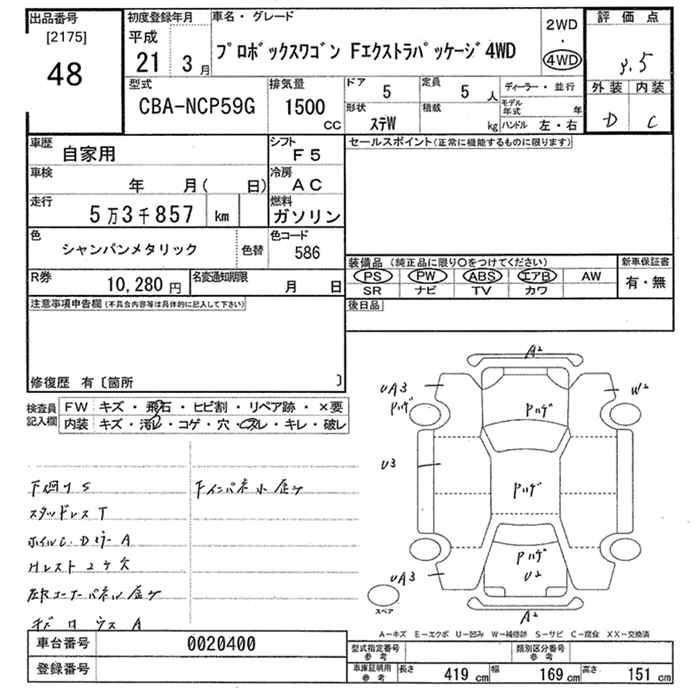 出品番号
[2175]
48
初度登録年月
平成
21 3月
車名・グレード
プロボックスワゴン Fエクストラパッケージ4WD
2WD
・
4WD
評価点
3.5
外装 内装
D C
型式
CBA-NCP59G
排気量
1500
CC
ドア 5
定員 5 人
ディーラー・並行
形状 ステW
積載 kg
モデル年式 年
ハンドル 左・右
車歴 自家用
シフト F5
車検 年 月( 日)
冷房 AC
走行 5万3千857 km
燃料 ガソリン
色 シャンパンメタリック
色替
色コード 586
R券 10,280円
名変通知期限 月 日
セールスポイント(正常に機能するものに限ります)
装備品 (純正品に限り○をつけてください)
新車保証書
PS PW ABS エアB AW
有・無
SR ナビ TV カワ
後日品
注意事項申告欄(不具合内容等は具体的に記入して下さい)
修復歴 有〔箇所 〕
検査員記入欄
FW キズ・飛石・ヒビ割・リペア跡・×要
内装 キズ・汚れ・コゲ・穴・スレ・キレ・破レ
下廻りS
スタッドレスT
ホイルC.DミラーA
Hレスト2ケ欠
左Rコーナーパネル金ケ
下インパネ小金ケ
A2
UA3
Pハゲ
Pハゲ
W2
U3
Pハゲ
Pハゲ
U2
UA3
A2
スペア
A−キズ E−エクボ U−凹み W−補修跡 S−サビ C−腐食 XX−交換済
車台番号 0020400
登録番号
型式指定番号参考
類別区分番号参考
車庫証明用参考
長さ 419 cm
幅 169 cm
高さ 151 cm